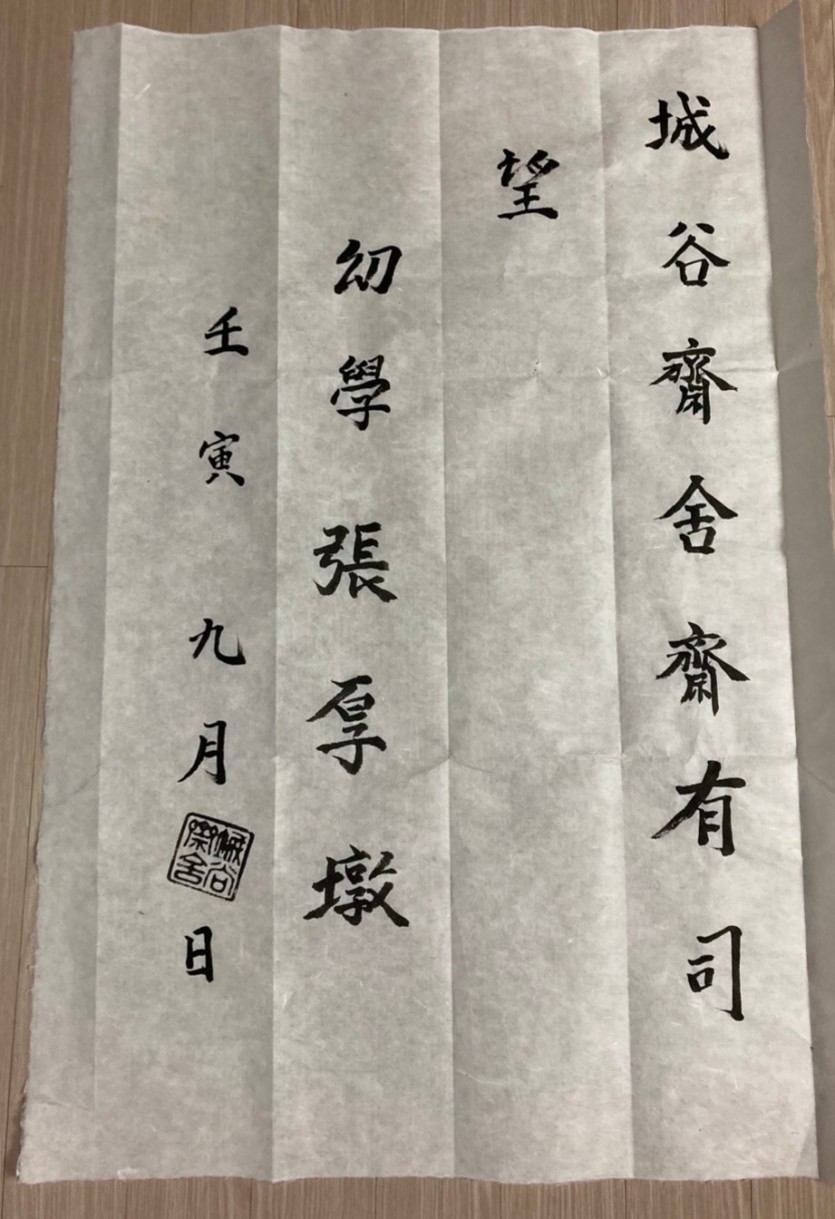 城谷齋舍齋有司
望
幼學張厚墩
壬寅九月日